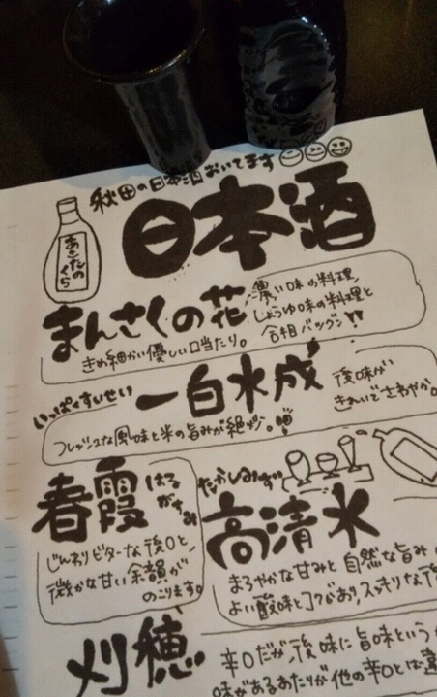 秋田の日本酒おいてます
日本酒
あきたの
くら
まんさくの花
濃い味の料理、
しょうゆ味の料理と
合相バツグン!!
きめ細かい優しい口当たり。
いっぱくすいせい
一白水成
後味が
きれいでさわやか。
フレッシュな風味と米の旨みが絶妙。
春霞
はるがすみ
じんわりビターな後口と、
微かな甘い余韻が
のこります。
たかしみず
高清水
まろやかな甘みと自然な旨み
よい酸味とコクがあり、スッキリな後
刈穂
辛口だが、後味に旨味という
味があるあたりが他の辛口とは違